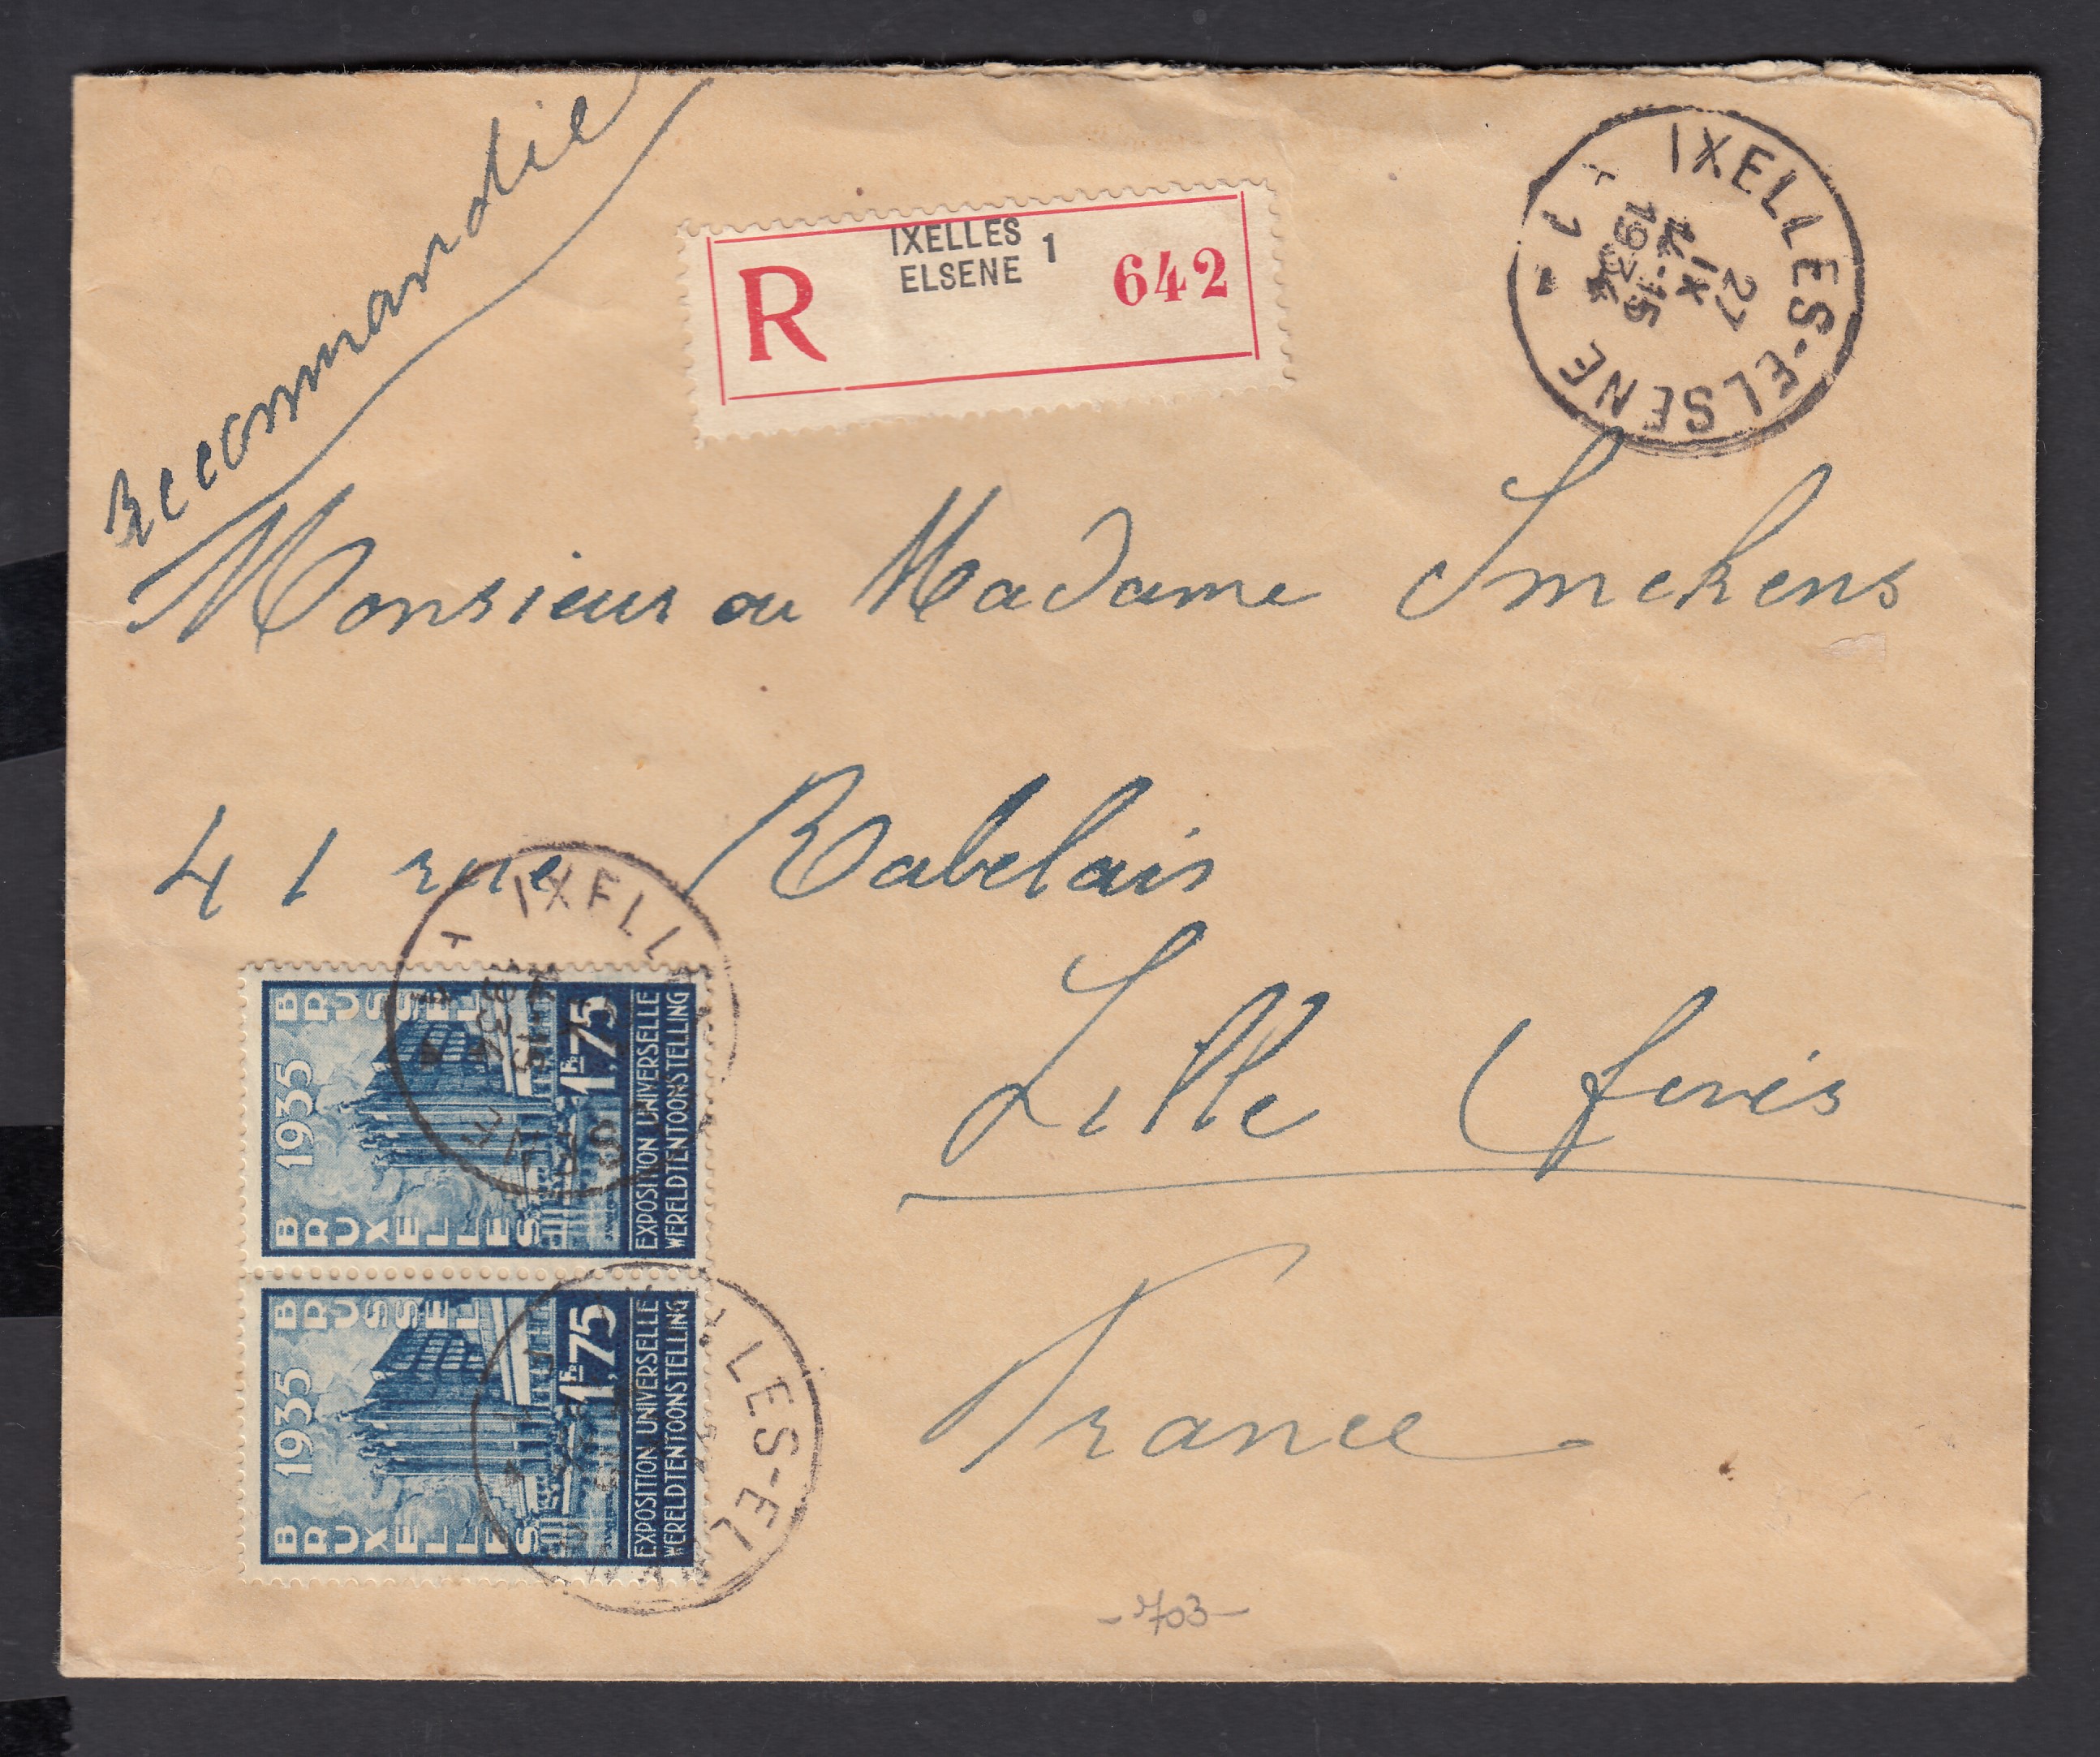 Recommandée
IXELLES
ELSENE 1
R 642
IXELLES-ELSENE
1 1
27
IX
14-15
1934
Monsieur ou Madame Smekens
41 rue Rabelais
Lille fives
France
IXELL
BRUXELLES 1935 BRUSSEL
1 Fr. 75
EXPOSITION UNIVERSELLE
WERELDTENTOONSTELLING
BRUXELLES 1935 BRUSSEL
1 Fr. 75
EXPOSITION UNIVERSELLE
WERELDTENTOONSTELLING
LES-EL
-703-